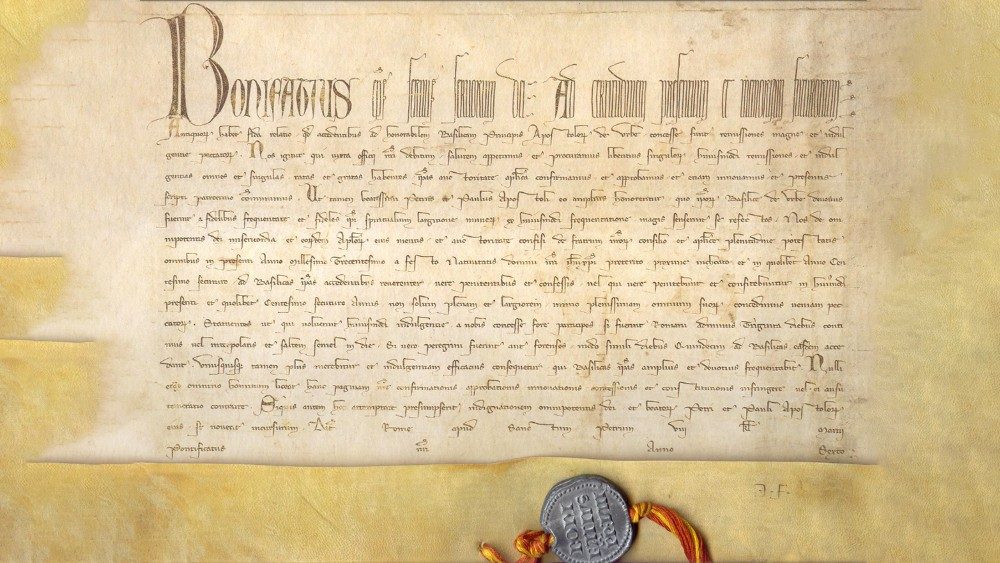 BONIFATIUS ep̄s servus servorum dei. Ad certitudinem presentium et memoriam futurorum.
Antiquor habet fida relatio qd accedentibus ad honorabilem Basilicam Principis Apostolor de Urbe concesse sunt remissiones magne et indul
gentie peccator. Nos igitur qui iuxta officii nri debitum salutem appetimus et procuramus libentius singulor huiusmodi remissiones et indul
gentias omnes et singulas ratas et gratas habentes ipsas auctoritate aplica confirmamus et approbamus et etiam innovamus et presentis
scripti patrocinio communimus. Ut tamen beatissimi Petrus et Paulus Apostoli eo amplius honorentur quo ipor Basilice de Urbe devotius
fuerint a fidelibus frequentate et fideles ipi spiritualium largitione muner ex huiusmodi frequentatione magis senserint se refectos. Nos de om
nipotentis dei misericordia et eordem Aplor eius meritis et auctoritate confisi de fratrum nror consilio et aplice plenitudine potestatis
omnibus in presenti Anno Millesimo Trecentesimo a festo Nativitatis domini nri ihu xpi preterito proxime inchoato et in quolibet Anno Cen
tesimo secuturo ad Basilicas ipas accedentibus reverenter vere penitentibus et confessis vel qui vere penitebunt et confitebuntur in huiusmodi
presenti et quolibet Centesimo secuturo Annis non solum plenam et largiorem immo plenissimam omnium suor concedimus veniam pec
cator. Statuentes ut qui voluerint huiusmodi indulgentie a nobis concesse fore participes si fuerint Romani ad minus Triginta diebus conti
nuis vel interpolatis et saltem semel in die. Si vero peregrini fuerint aut forenses modo simili diebus Quindecim ad Basilicas easdem acce
dant. Unusquisq tamen plus merebitur et indulgentiam efficacius consequetur qui Basilicas ipas amplius et devotius frequentabit. Nulli
ergo omnino hominum liceat hanc paginam nre confirmationis approbationis innovationis concessionis et constitutionis infringere vel ei ausu
temerario contraire. Siquis autem hoc attemptare presumpserit indignationem omnipotentis dei et beator Petri et Pauli Apostolor
eius se noverit incursurum. Dat Rome apud Sanctum Petrum viij kl Martii
Pontificatus nri Anno Sexto
BONI
FATIUS
PP VIII